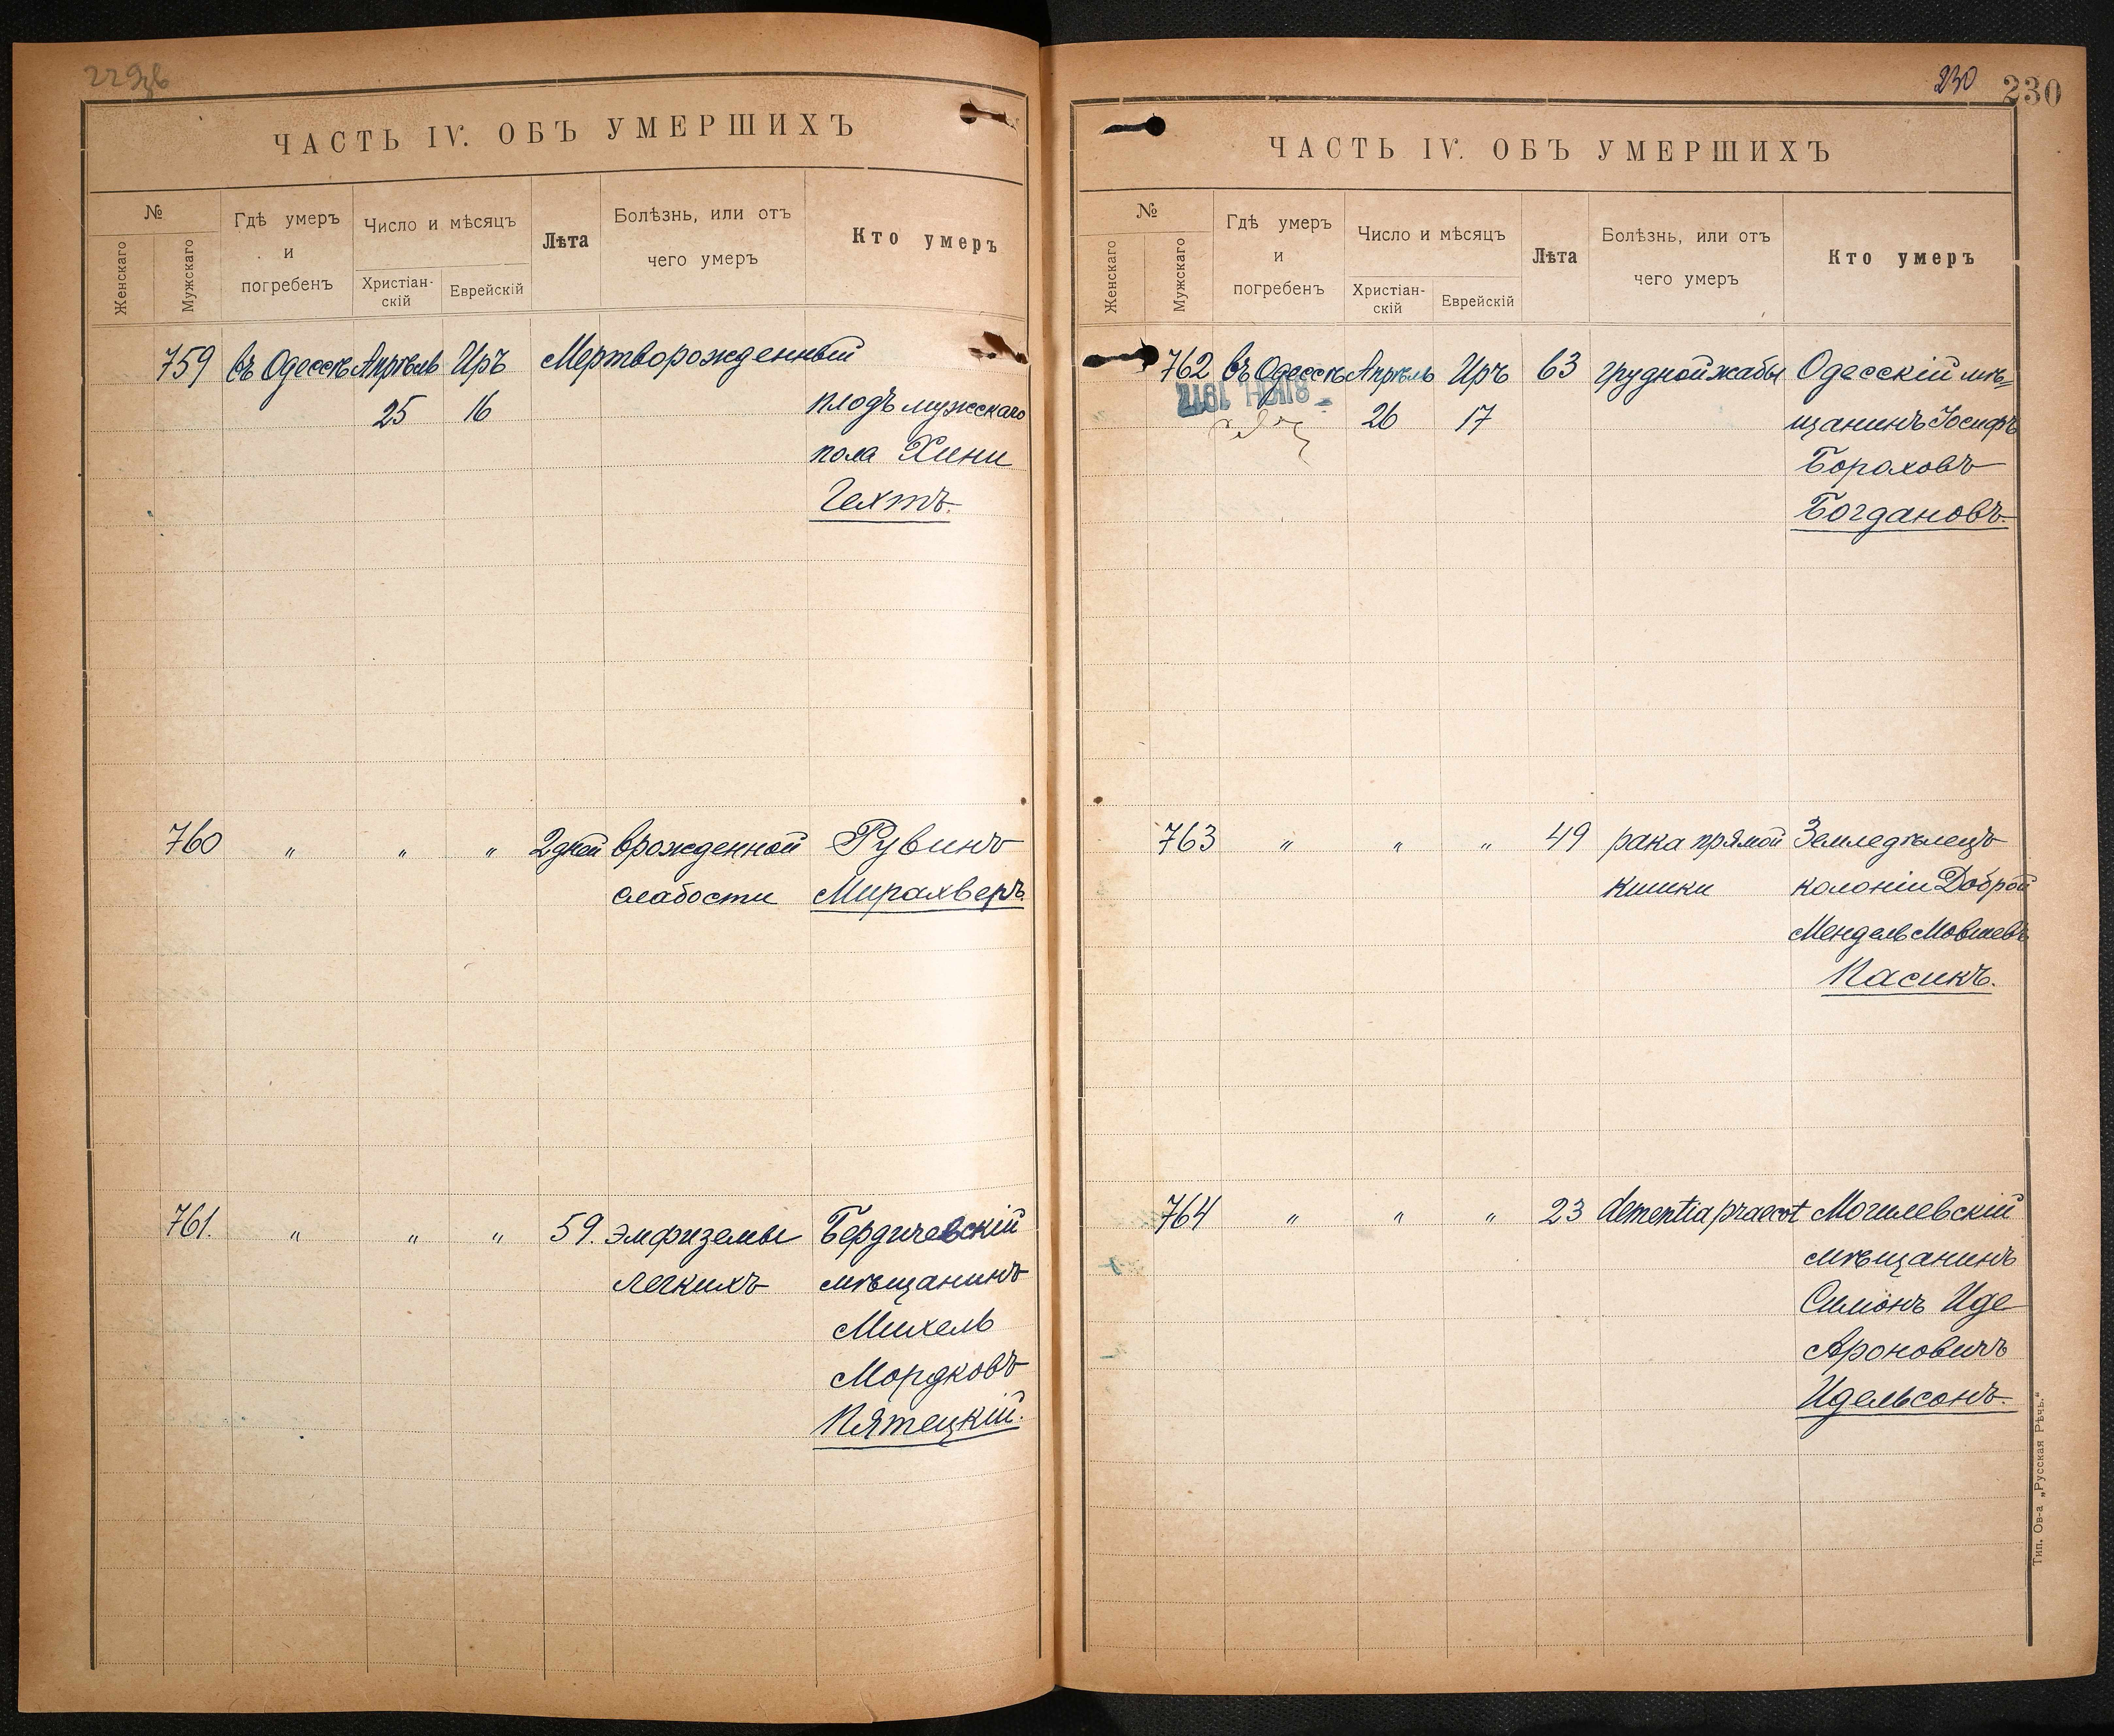 229об
ЧАСТЬ IV. ОБЪ УМЕРШИХЪ
№
Женскаго
Мужскаго
Гдѣ умеръ
и
погребенъ
Число и мѣсяцъ
Христіан-
скій
Еврейскій
Лѣта
Болѣзнь, или отъ
чего умеръ
Кто умеръ
759 въ Одессѣ Апрѣль Иръ Мертворожденный
25 16 плодъ мужскаго
пола Хини
Гехтъ.
760 " " " 2 дней врожденной Рувинъ
слабости Мирахверъ.
761. " " " 59. эмфиземы Бердичевскій
легкихъ мѣщанинъ
Михель
Мордковъ
Пятецкій.
230 230
ЧАСТЬ IV. ОБЪ УМЕРШИХЪ
№
Женскаго
Мужскаго
Гдѣ умеръ
и
погребенъ
Число и мѣсяцъ
Христіан-
скій
Еврейскій
Лѣта
Болѣзнь, или отъ
чего умеръ
Кто умеръ
762 въ Одессѣ Апрѣль Иръ 63 грудной жабы Одесскій мѣ=
26 17 щанинъ Іосифъ
Бораховъ
Богдановъ.
763 " " " 49 рака прямой Земледѣлецъ
кишки колоніи Доброй
Мендель Мовшевъ
Пасикъ.
764 " " " 23 dementia praecot Могилевскій
мѣщанинъ
Симонъ Иде
Ароновичъ
Идельсонъ.
Тип. Ов-а „Русская Рѣчь."